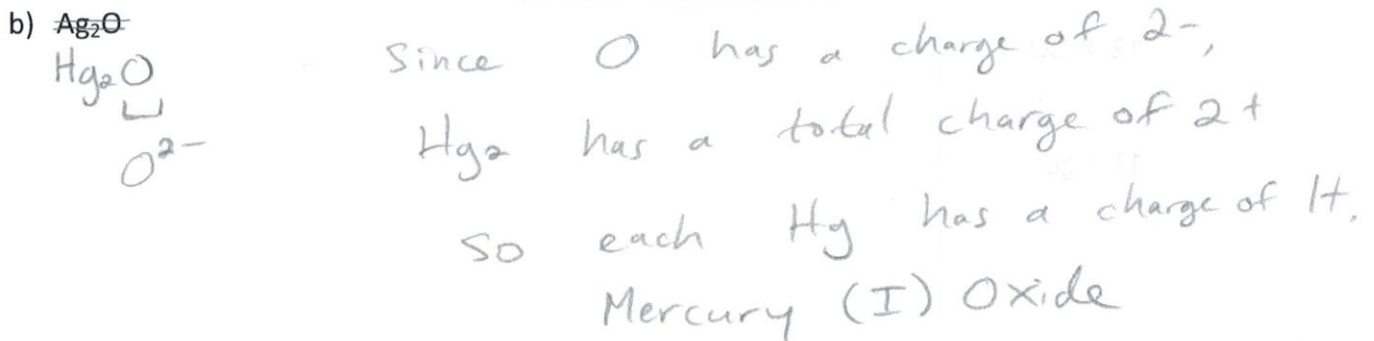 b) Ag₂O
Hg₂O
O²⁻
Since O has a charge of 2-,
Hg₂ has a total charge of 2+
so each Hg has a charge of 1+.
Mercury (I) Oxide